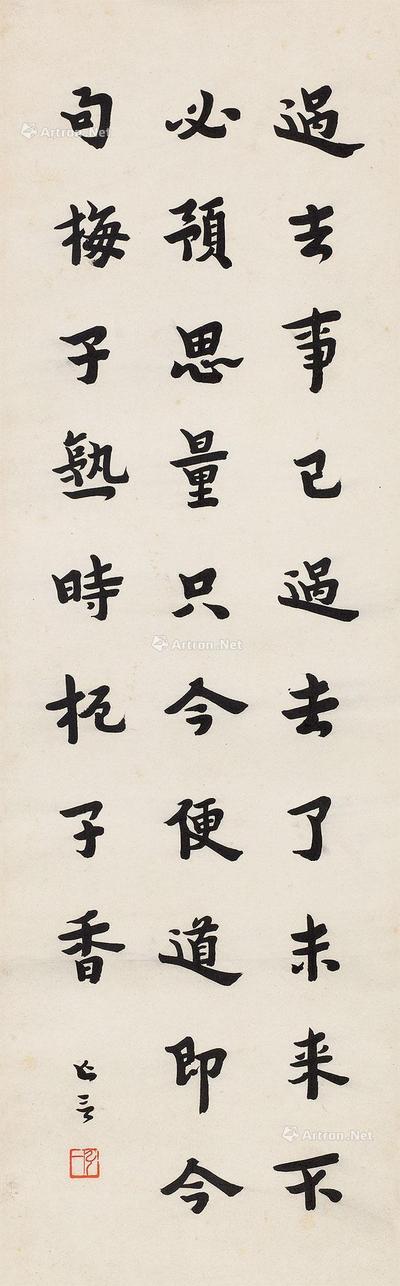 過去事已過去了未来不
必預思量只今便道即今
句梅子熟時栀子香
亡言
弘一
Artron.Net
Artron.Net
Artron.Net